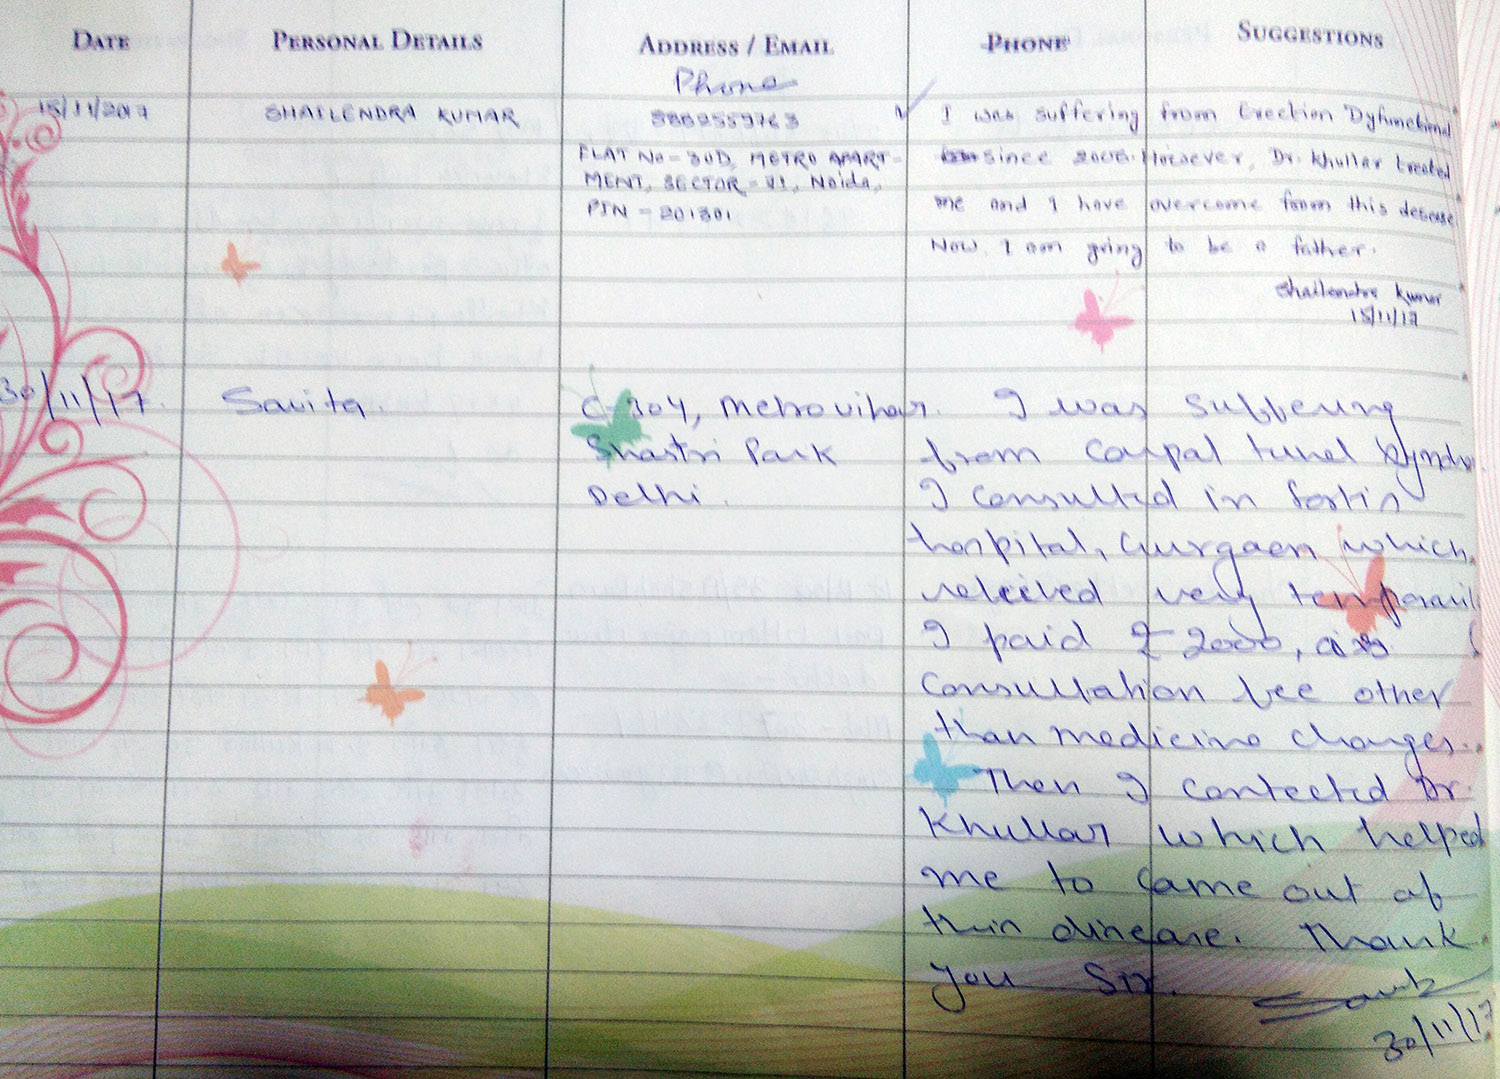 DATE PERSONAL DETAILS ADDRESS / EMAIL PHONE SUGGESTIONS
Phone
15/11/2017 SHAILENDRA KUMAR 8862559763
FLAT No - 30D, METRO APART-
MENT, SECTOR - 71, Noida,
PIN - 201301
I was suffering from Erection Dyfunctional
since 2006. However, Dr. Khullar treated
me and I have overcome from this desease
Now, I am going to be a father.
Shailendra Kumar
15/11/17
30/11/17. Savita
C-304, Metrovihar.
Shastri Park
Delhi.
I was suffering
from Carpal tunel
I consulted in fortis
hospital, Gurgaon which
releived very
I paid ₹ 2000, as
Consultation fee other
than medicine charges..
Then I contected Dr.
Khullar which helped
me to came out of
this disease. Thank
you Sir.
30/11/17